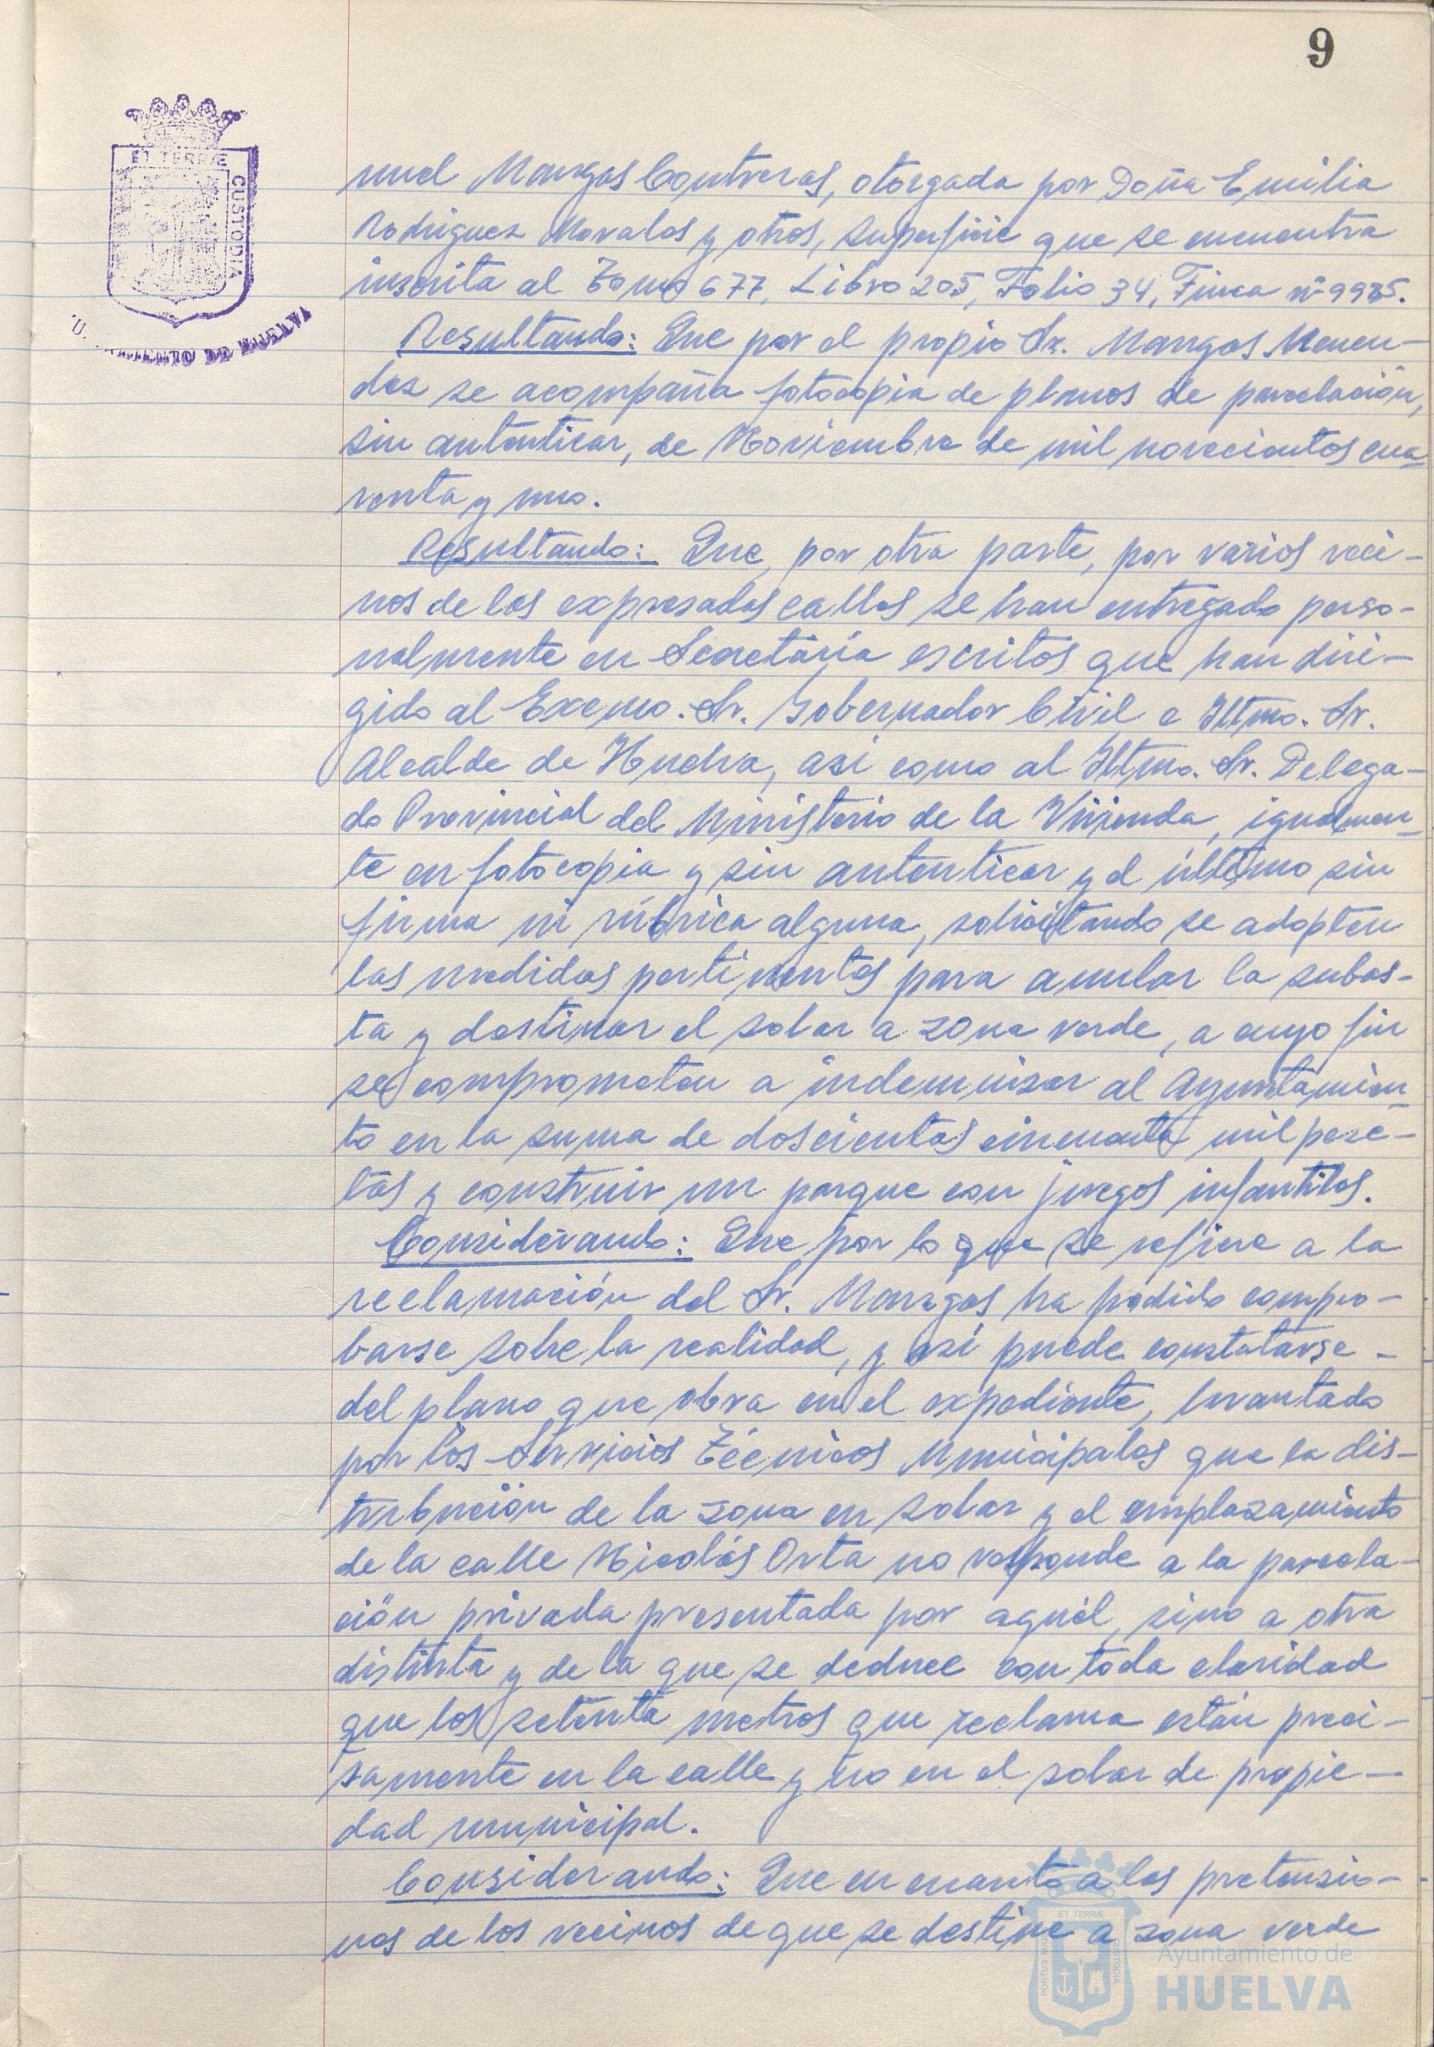 9
ET TERRÆ
CUSTODIA
nuel Mangas Contreras, otorgada por Doña Emilia
Rodriguez Morales y otros, superficie que se encuentra
inscrita al Tomo 677, Libro 205, Folio 34, Finca nº
Resultando: Que por el propio Sr. Mangas Menen-
dez se acompaña fotocopia de planos de parcelación,
sin autenticar, de Noviembre de mil novecientos cua-
renta y uno.
Resultando: Que, por otra parte, por varios veci-
nos de las expresadas calles se han entregado perso-
nalmente en Secretaría escritos que han diri-
gido al Excmo. Sr. Gobernador Civil e Iltmo. Sr.
Alcalde de Huelva, asi como al Iltmo. Sr. Delega-
do Provincial del Ministerio de la Vivienda, igualmen-
te en fotocopia y sin autenticar y el último sin
firma ni rúbrica alguna, solicitando se adopten
las medidas pertinentes para anular la subas-
ta y destinar el solar a zona verde, a cuyo fin
se comprometen a indemnizar al Ayuntamien-
to en la suma de doscientas cincuenta mil pese-
tas y construir un parque con juegos infantiles.
Considerando: Que por lo que se refiere a la
reclamación del Sr. Mangas ha podido compro-
barse sobre la realidad, y asi puede constatarse -
del plano que obra en el expediente, levantado
por los Servicios Técnicos Municipales que la dis-
tribución de la zona en solar y el emplazamiento
de la calle Nicolás Orta no responde a la parcela-
ción privada presentada por aquél, sino a otra
distinta y de la que se deduce con toda claridad
que los setenta metros que reclama están preci-
samente en la calle y no en el solar de propie-
dad municipal.
Considerando: Que en cuanto a las pretensio-
nes de los vecinos de que se destine a zona verde
Ayuntamiento de
HUELVA